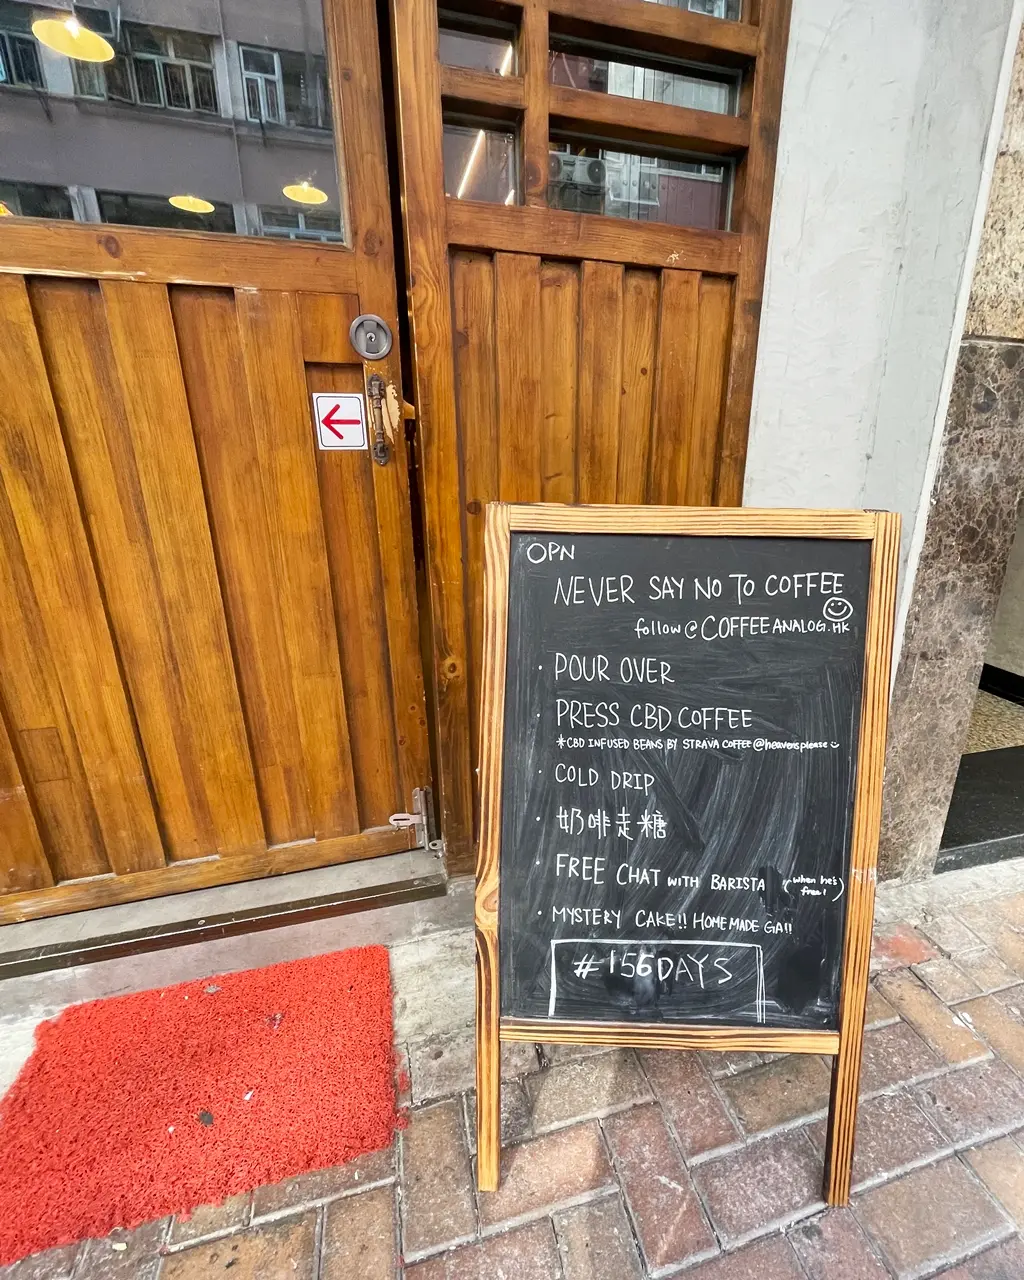 OPN
NEVER SAY NO TO COFFEE
follow @COFFEEANALOG.HK
• POUR OVER
• PRESS CBD COFFEE
*CBD INFUSED BEANS BY STRAVA COFFEE @heavensplease
• COLD DRIP
• 奶啡走糖
• FREE CHAT WITH BARISTA (when he's free!)
• MYSTERY CAKE!! HOMEMADE GA!!
#156DAYS